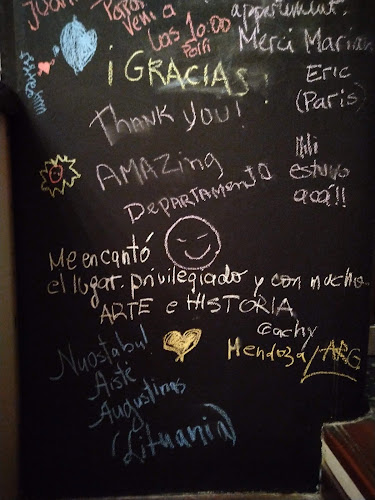 Juan
Papas
Veni a
Las 10:00
appartement.
Merci Marian
Eric
(Paris)
¡GRACIAS!
THANK YOU!
AMAZING
DEPARTAMENTO
estuvo
acá!!
Me encantó
el lugar. privilegiado y con mucho
ARTE e HISTORIA
Gachy
Mendoza/ARG
Nuostabu!
Aistė
Augustinas
(Lituania)